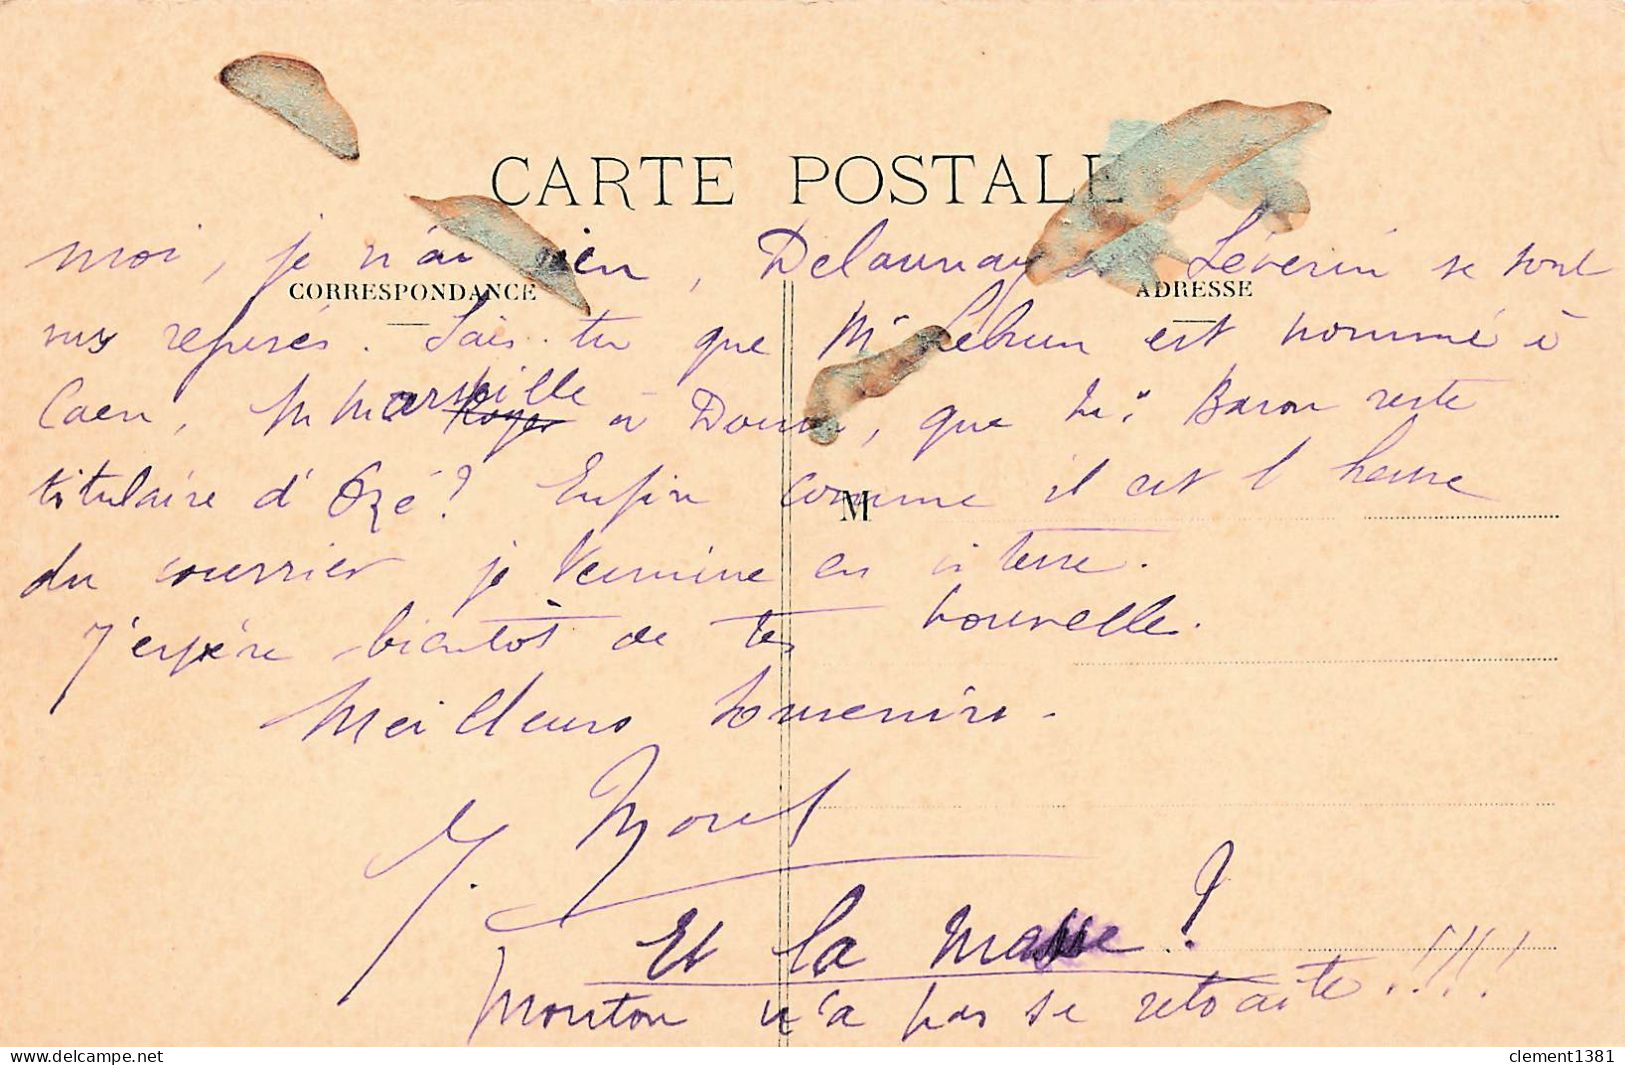 CARTE POSTALE
CORRESPONDANCE
ADRESSE
M
moi, je n'ai rien, Delaunay et Séverin se sont
vus refusés. Sais-tu que Mr Lebrun est nommé à
Caen, M Marseille à Douai, que Mr Baron reste
titulaire d'Ozé? Enfin comme il est l'heure
du courrier je termine en vitesse.
J'espère bientôt de tes nouvelle.
Meilleurs Souvenirs.
J. Morel
Et la Masse!
Mouton n'a pas sa retraite!!!!
clement1381